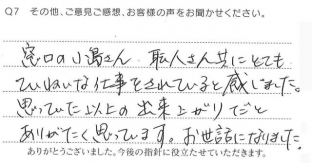 Q7 その他、ご意見ご感想、お客様の声をお聞かせください。
窓口の小濱さん 職人さん共にとても
ていねいな仕事をされていると感じました。
思っていた以上の出来上がりだと
ありがたく思っています。お世話になりました。
ありがとうございました。今後の指針に役立たせていただきます。